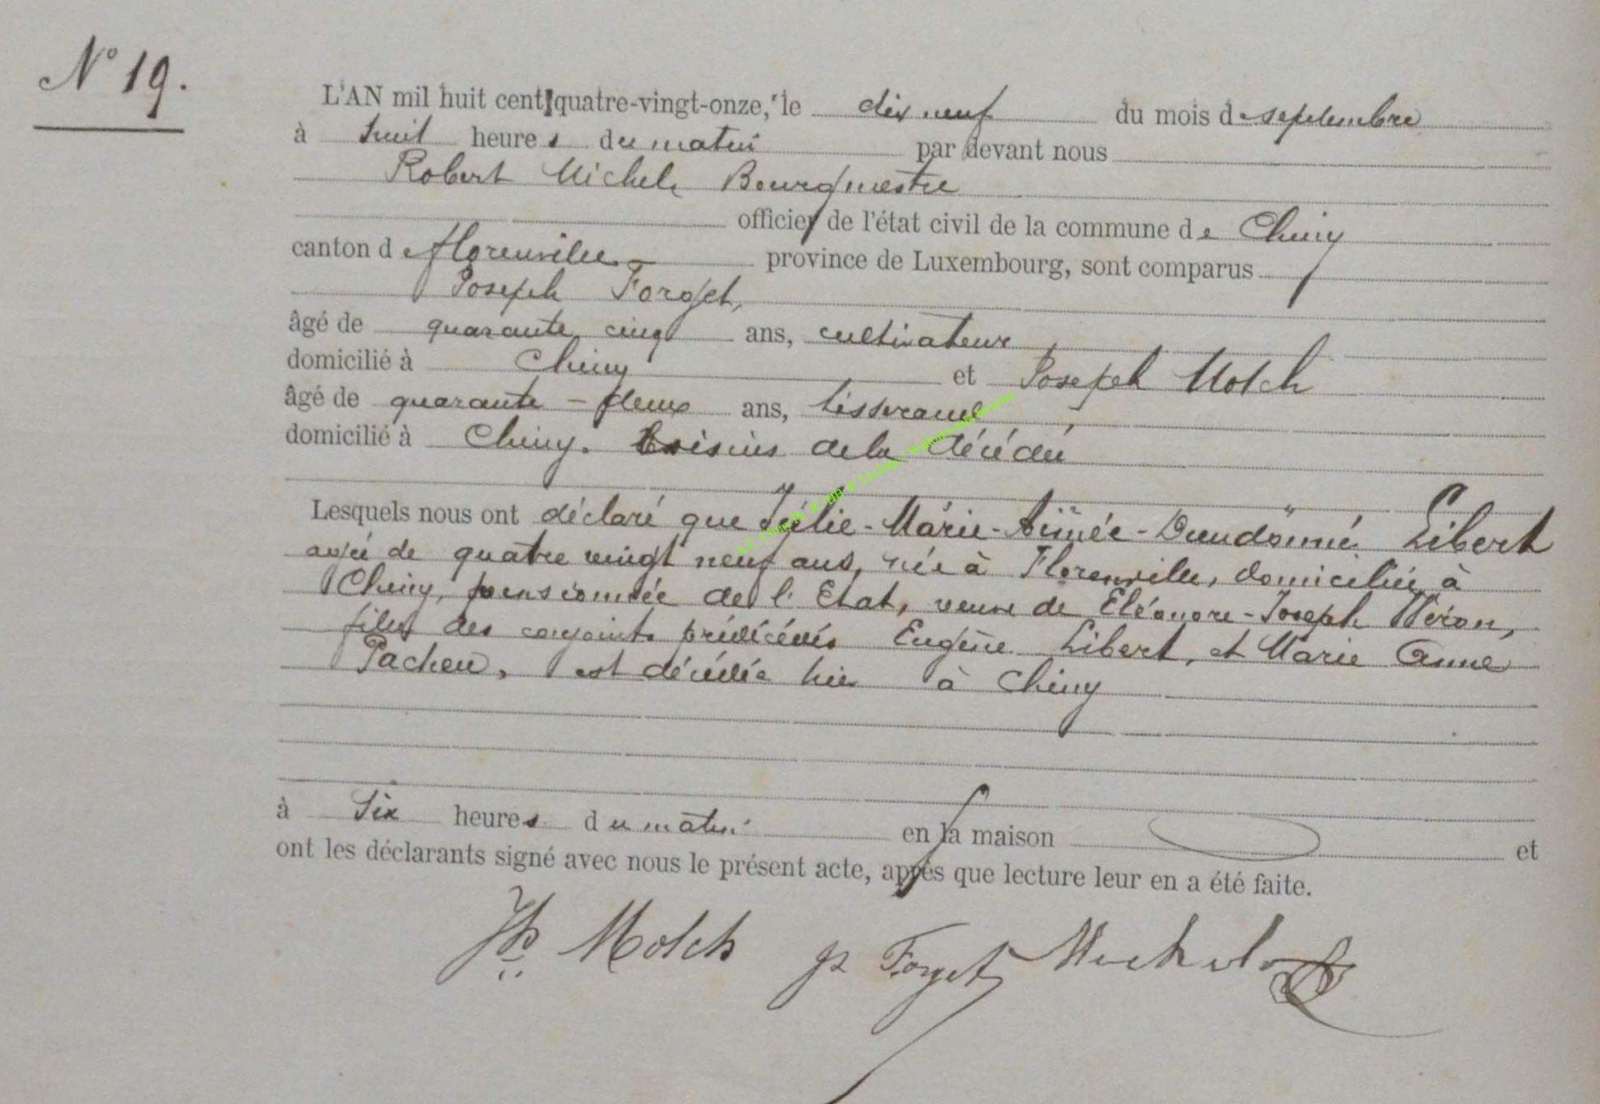 N° 19.
L'AN mil huit cent quatre-vingt-onze, le dix neuf du mois de septembre
à huit heures du matin par devant nous
Robert Michel, Bourgmestre
officier de l'état civil de la commune de Chiny
canton de florenville province de Luxembourg, sont comparus
Joseph Forget,
âgé de quarante cinq ans, cultivateur
domicilié à Chiny et Joseph Molch
âgé de quarante-deux ans, tisserand
domicilié à Chiny. Voisins de la décédée
Lesquels nous ont déclaré que Julie-Marie-Aimée-Dieudonné Libert
agée de quatre vingt neuf ans, née à Florenville, domiciliée à
Chiny, pensionnée de l'Etat, veuve de Eléonore-Joseph
fille des conjoints prédécédés Eugène Libert, et Marie Anne
est décédée hier à Chiny
à Six heures du matin en la maison et
ont les déclarants signé avec nous le présent acte, après que lecture leur en a été faite.
Jh Molch Forget Michel